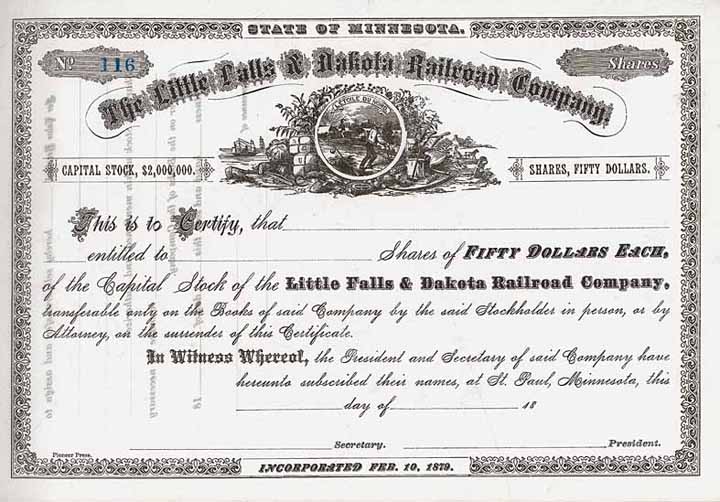 STATE OF MINNESOTA.
No 116
Shares
The Little Falls & Dakota Railroad Company.
L'ETOILE DU NORD
CAPITAL STOCK, $2,000,000.
SHARES, FIFTY DOLLARS.
This is to Certify, that
entitled to Shares of FIFTY DOLLARS EACH,
of the Capital Stock of the Little Falls & Dakota Railroad Company,
transferable only on the Books of said Company by the said Stockholder in person, or by
Attorney, on the surrender of this Certificate.
In Witness Whereof, the President and Secretary of said Company have
hereunto subscribed their names, at St. Paul, Minnesota, this
day of 18
Secretary. President.
Pioneer Press.
INCORPORATED FEB. 10, 1879.